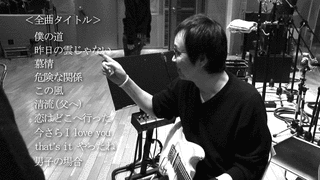 ＜全曲タイトル＞
僕の道
昨日の雲じゃない
慕情
危険な関係
この風
清流(父へ)
恋はどこへ行った
今さら I love you
that's it やってね
男子の場合